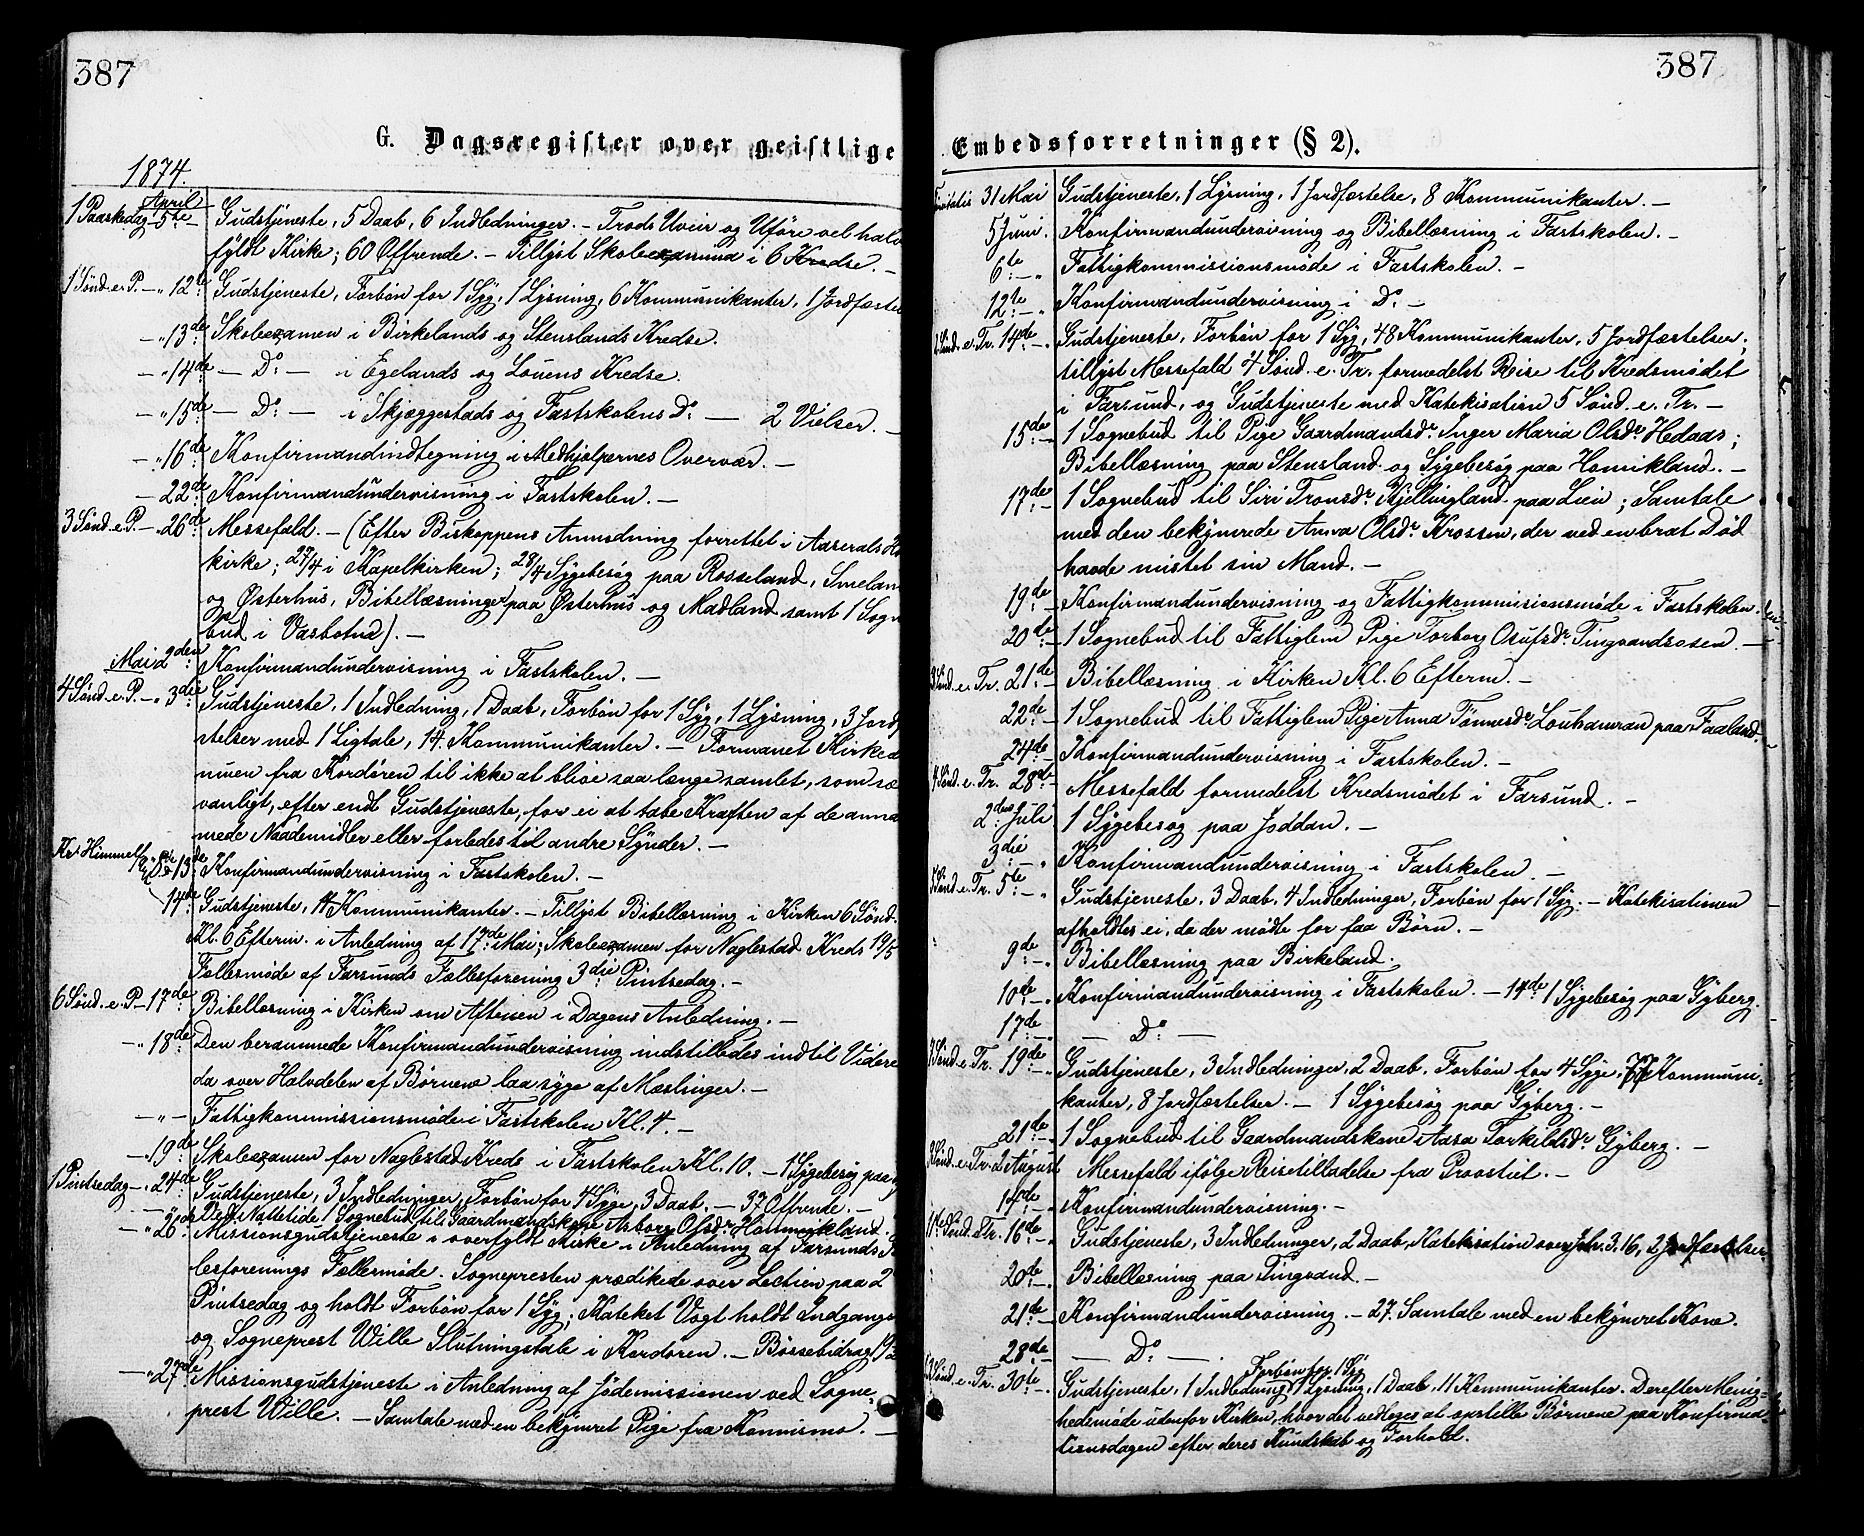 387
G. Dagsregister over geistlige
1874.
April
1 Paaskedag 5te – Gudstjeneste, 5 Daab, 6 Indledninger. – Trods Uveir og Uføre vel halv
fyldt Kirke; 60 Offrende. – Tillyst Skoleexamina i 6 Kredse. –
1 Sønd. e. P. – " 12te Gudstjeneste, Forbøn for 1 Syg, 1 Lysning, 6 Kommunikanter, 1 Jordfæstel
– " 13de Skoleexamen i Birkelands og Stenslands Kredse.
– " 14de – Do – i Egelands og Louens Kredse.
– " 15de – Do – i Skjæggestads og Fastskolens Do – 2 Vielser. –
– " 16de Konfirmandindtegning i Medhjælpernes Overvær. –
– 22de Konfirmandundervisning i Fastskolen. –
3 Sønd. e. P. – " 26de Messefald. – (Efter Biskoppens Anmodning forrettet i Aaserals Ho
kirke; 27/4 i Kapelkirken; 28/4 Sygebesøg paa Rosseland, Smelan
og Østerhus, Bibellæsninger paa Østerhus og Madland samt 1 Sogn
bud i Vasbotna). –
Mai 2den Konfirmandundervisning i Fastskolen. –
4 Sønd. e. P. – " 3die Gudstjeneste, 1 Indledning, 1 Daab, Forbøn for 1 Syg, 1 Lysning, 3 Jordf
stelser med 1 Ligtale, 14 Kommunikanter. – Formanet Kirkeal
muen fra Kordøren til ikke at blive saa længe samlet, som sæ
vanligt, efter endt Gudstjeneste, for ei at tabe Kraften af de anna
mede Naademidler eller forledes til andre Synder. –
Kr. Himmelf. 13de Konfirmandundervisning i Fastskolen. –
14de Gudstjeneste, 11 Kommunikanter. – Tillyst Bibellæsning i Kirken 6 Sønd.
Kl. 6 Efterm. i Anledning af 17de Mai; Skoleexamen for Naglestad Kreds 19/5
Fællesmøde af Farsunds Fællesforening 3die Pintsedag. –
6 Sønd. e. P. – 17de Bibellæsning i Kirken om Aftenen i Dagens Anledning. –
– " 18de Den berammede Konfirmandundervisning indstilledes indtil Videre
da over Halvdelen af Børnene laa syge af Mæslinger. –
– " – Fattigkommissionsmøde i Fastskolen Kl. 4. –
– 19de Skoleexamen for Naglestad Kreds i Fastskolen Kl. 10. – 1 Sygebesøg paa
1 Pintsedag – " 24de Gudstjeneste, 3 Indledninger, Forbøn for 4 Syge, 3 Daab. – 37 Offrende. –
– " – Ved Nattetide 1 Sognebud til Gaardmandskone Asborg Olsdr Hommekland.
– " 26de Missionsgudstjeneste i overfyldt Kirke i Anledning af Farsunds F
lesforenings Fællesmøde. Sognepresten prædikede over Lectien paa 2
Pintsedag og holdt Forbøn for 1 Syg; Kateket Vogt holdt Indgangs
og Sogneprest Wille Slutningstale i Kordøren. – Bøssebidrag 19
– " 27de Missionsgudstjeneste i Anledning af Jødemissionen ved Sogne-
prest Wille. – Samtale med en bekymret Pige fra Konnismo. –
387
Embedsforretninger (§ 2).
Trinitatis 31 Mai Gudstjeneste, 1 Lysning, 1 Jordfæstelse, 8 Kommunikanter. –
5 Juni. Konfirmandundervisning og Bibellæsning i Fastskolen. –
6te – " Fattigkommissionsmøde i Fastskolen. –
12te – " Konfirmandundervisning i Do –
2 Sønd. e. Tr. 14de – " Gudstjeneste, Forbøn for 1 Syg, 48 Kommunikanter, 5 Jordfæstelser;
tillyst Messefald 4 Sønd. e. Tr. formedelst Reise til Kredsmødet
i Farsund, og Gudstjeneste med Katekisation 5 Sønd. e. Tr. –
15de – 1 Sognebud til Pige Gaardmandsdr Inger Maria Olsdr Hedaas;
Bibellæsning paa Stensland og Sygebesøg paa Homikland. –
17de – 1 Sognebud til Siri Tronsdr Kjellingland paa Lien; Samtale
med den bekymrede Anna Olsdr Krossen, der ved en brat Død
havde mistet sin Mand. –
19de – Konfirmandundervisning og Fattigkommissionsmøde i Fastskolen.
20de – 1 Sognebud til Fattiglem Pige Torborg Osufsdr Tingvandsosen. –
3 Sønd. e. Tr. 21de – Bibellæsning i Kirken Kl. 6 Efterm. –
22de – 1 Sognebud til Fattiglem Pige Anna Tønnesdr Louhamran paa Faaland.
24de – Konfirmandundervisning i Fastskolen. –
4 Sønd. e. Tr. 28de – Messefald formedelst Kredsmødet i Farsund. –
2den Juli 1 Sygebesøg paa Joddan. –
3die – " Konfirmandundervisning i Fastskolen. –
5 Sønd. e. Tr. 5te – " Gudstjeneste, 3 Daab, 4 Indledninger, Forbøn for 1 Syg. – Katekisationen
afholdtes ei, da der mødte for faa Børn. –
9de – " Bibellæsning paa Birkeland.
10de – " Konfirmandundervisning i Fastskolen. – 14de 1 Sygebesøg paa Gyberg.
17de – " – Do –
7 Sønd. e. Tr. 19de – " Gudstjeneste, 3 Indledninger, 2 Daab, Forbøn for 4 Syge, 77 Kommuni-
kanter, 8 Jordfæstelser. – 1 Sygebesøg paa Gyberg. –
21de – " 1 Sognebud til Gaardmandskone Aasa Torkildsdr Gyberg. –
Sønd. e. Tr. 2 August Messefald ifølge Reisetilladelse fra Provstiet. –
14de – Konfirmandundervisning. –
11te Sønd. e. Tr. 16de – " Gudstjeneste, 3 Indledninger, 2 Daab, Katekisation over Joh. 3, 16, 2 Jordfæstelser
20de – Bibellæsning paa Tingvand. –
21de – Konfirmandundervisning. – 27. Samtale med en bekymret Kone.
28de – – Do –
Forbøn for 1 Syg
13 Sønd. e. Tr. 30te – " Gudstjeneste, 1 Indledning, 1 Lysning, 1 Daab, 11 Kommunikanter. Derefter Menig-
hedsmøde udenfor Kirken, hvor det vedtoges at opstille Børnene paa Konfirma-
tionsdagen efter deres Kundskab og Forhold.